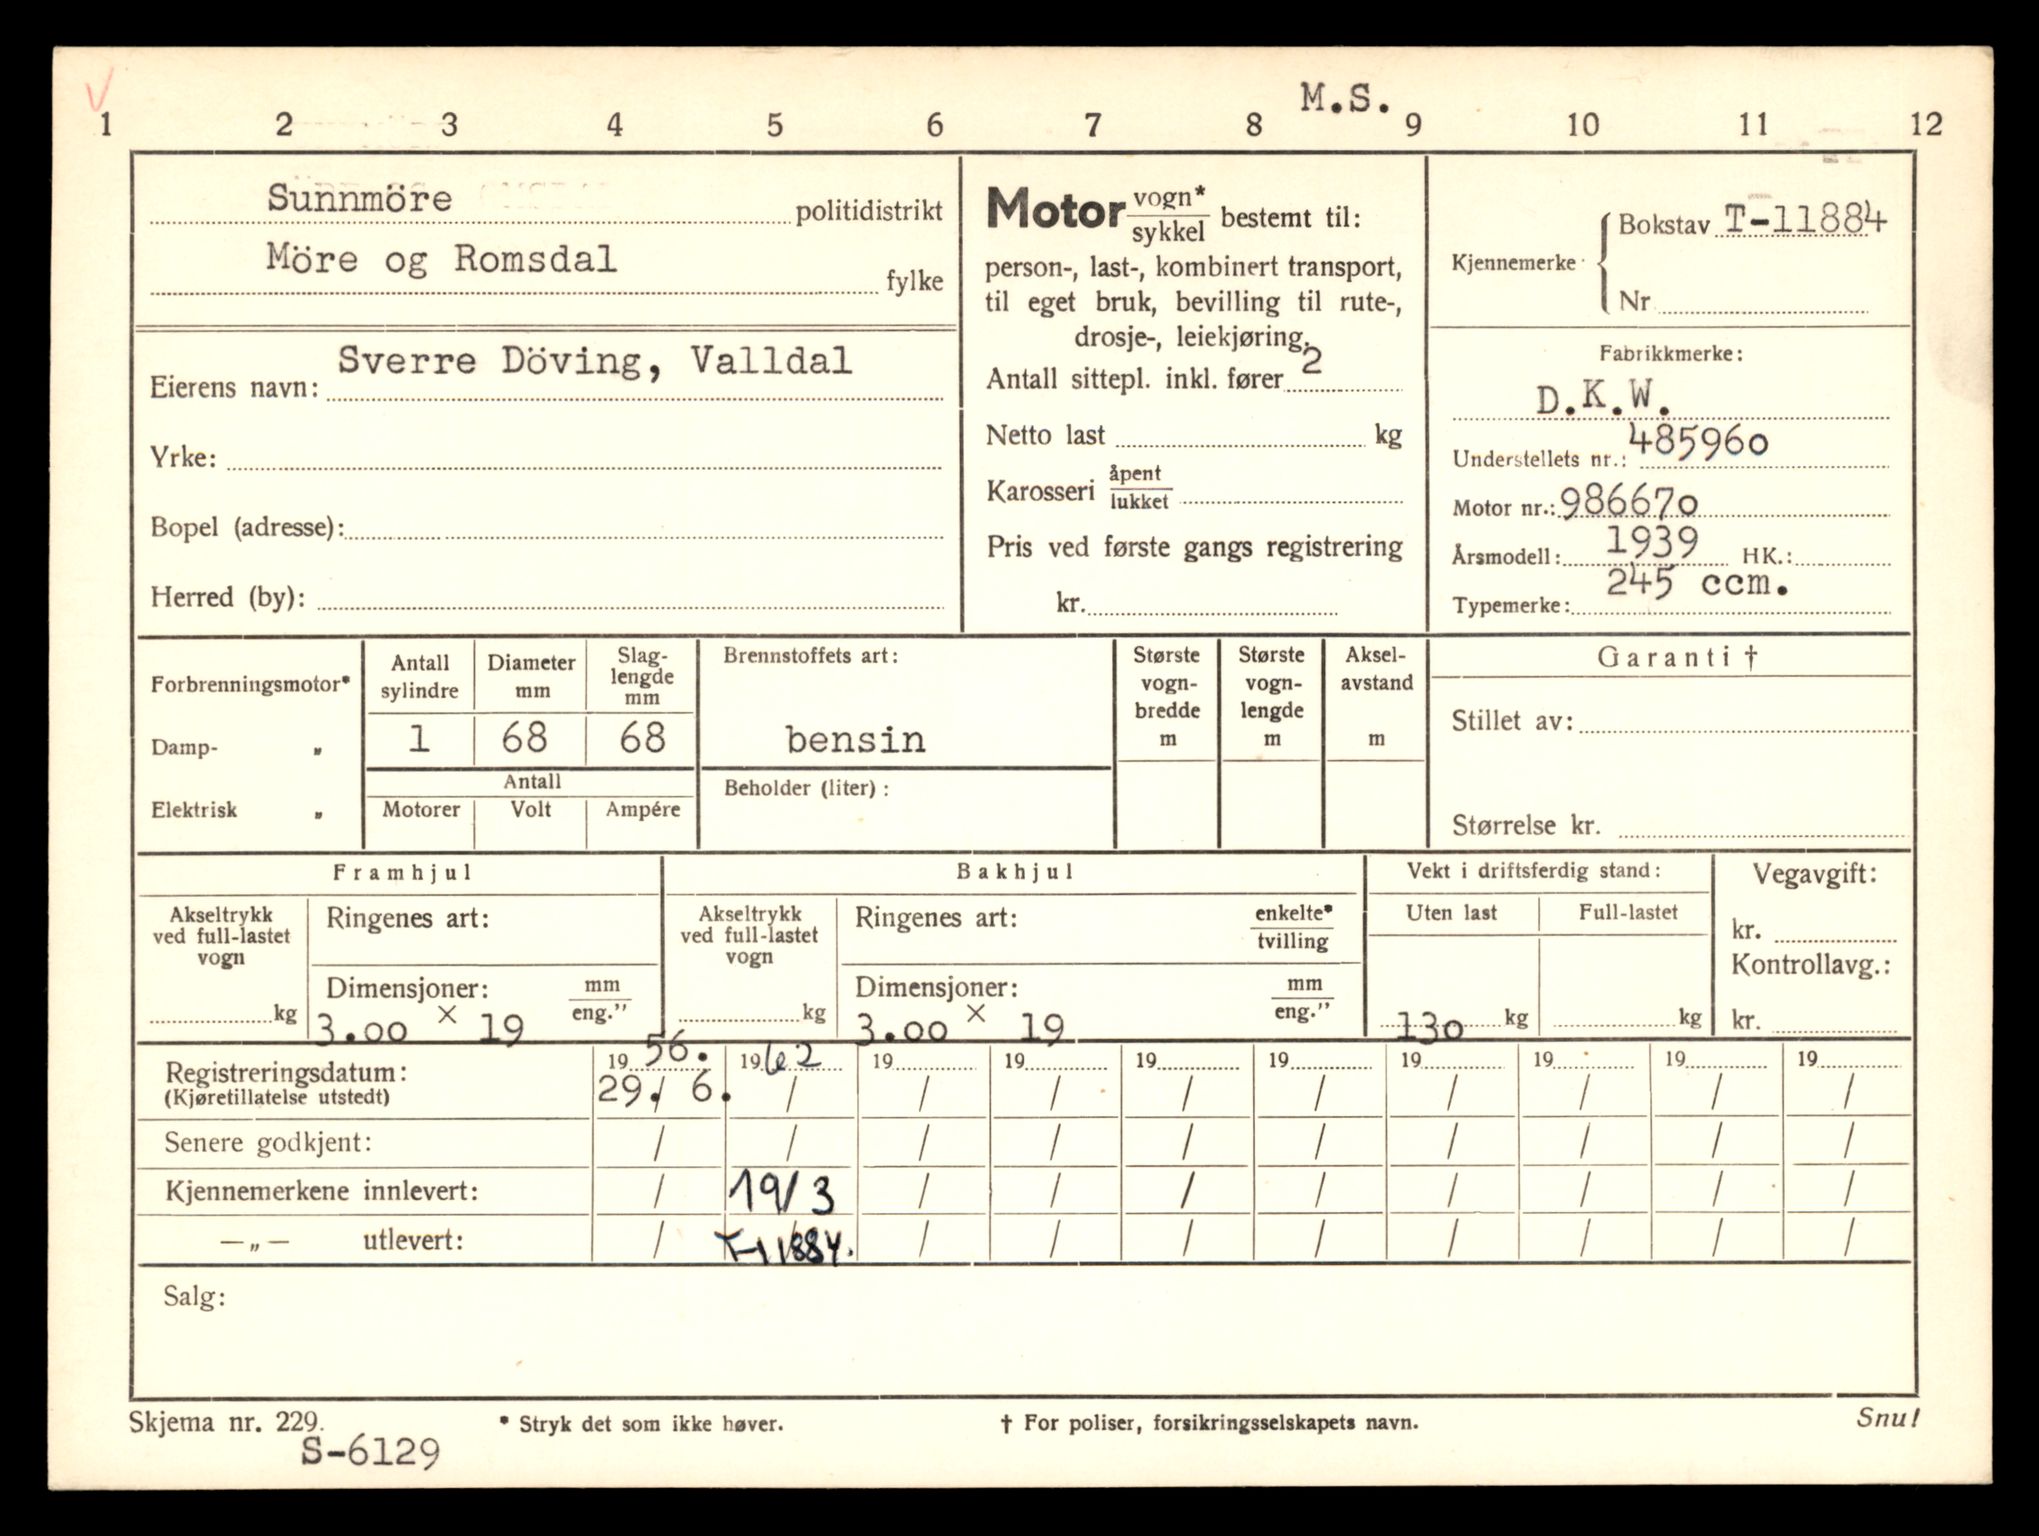 M.S.
1 2 3 4 5 6 7 8 9 10 11 12
Sunnmöre politidistrikt
Möre og Romsdal fylke
Eierens navn: Sverre Döving, Valldal
Yrke:
Bopel (adresse):
Herred (by):
Motor vogn* / sykkel bestemt til:
person-, last-, kombinert transport,
til eget bruk, bevilling til rute-,
drosje-, leiekjøring.
Antall sittepl. inkl. fører 2
Netto last kg
Karosseri åpent / lukket
Pris ved første gangs registrering
kr.
Kjennemerke Bokstav T-11884
Nr
Fabrikkmerke:
D.K.W.
Understellets nr.: 485960
Motor nr.: 986670
Årsmodell: 1939 HK.:
Typemerke: 245 ccm.
Forbrenningsmotor*
Damp- „
Elektrisk „
Antall sylindre Diameter mm Slag-lengde mm
1 68 68
Antall
Motorer Volt Ampére
Brennstoffets art:
bensin
Beholder (liter) :
Største vogn-bredde m
Største vogn-lengde m
Aksel-avstand m
Garanti †
Stillet av:
Størrelse kr.
Framhjul
Akseltrykk ved full-lastet vogn
kg
Ringenes art:
Dimensjoner: mm / eng."
3.00 × 19
Bakhjul
Akseltrykk ved full-lastet vogn
kg
Ringenes art: enkelte* / tvilling
Dimensjoner: mm / eng."
3.00 × 19
Vekt i driftsferdig stand:
Uten last Full-lastet
130 kg kg
Vegavgift:
kr.
Kontrollavg.:
kr.
19 56. 19 62 19 19 19 19 19 19 19 19
Registreringsdatum: 29./ 6. / / / / / / / / /
(Kjøretillatelse utstedt)
Senere godkjent: / / / / / / / / / /
Kjennemerkene innlevert: / 19/3 / / / / / / / /
—„— utlevert: / T-11884. / / / / / / / /
Salg:
Skjema nr. 229. * Stryk det som ikke høver. † For poliser, forsikringsselskapets navn. Snu!
S-6129